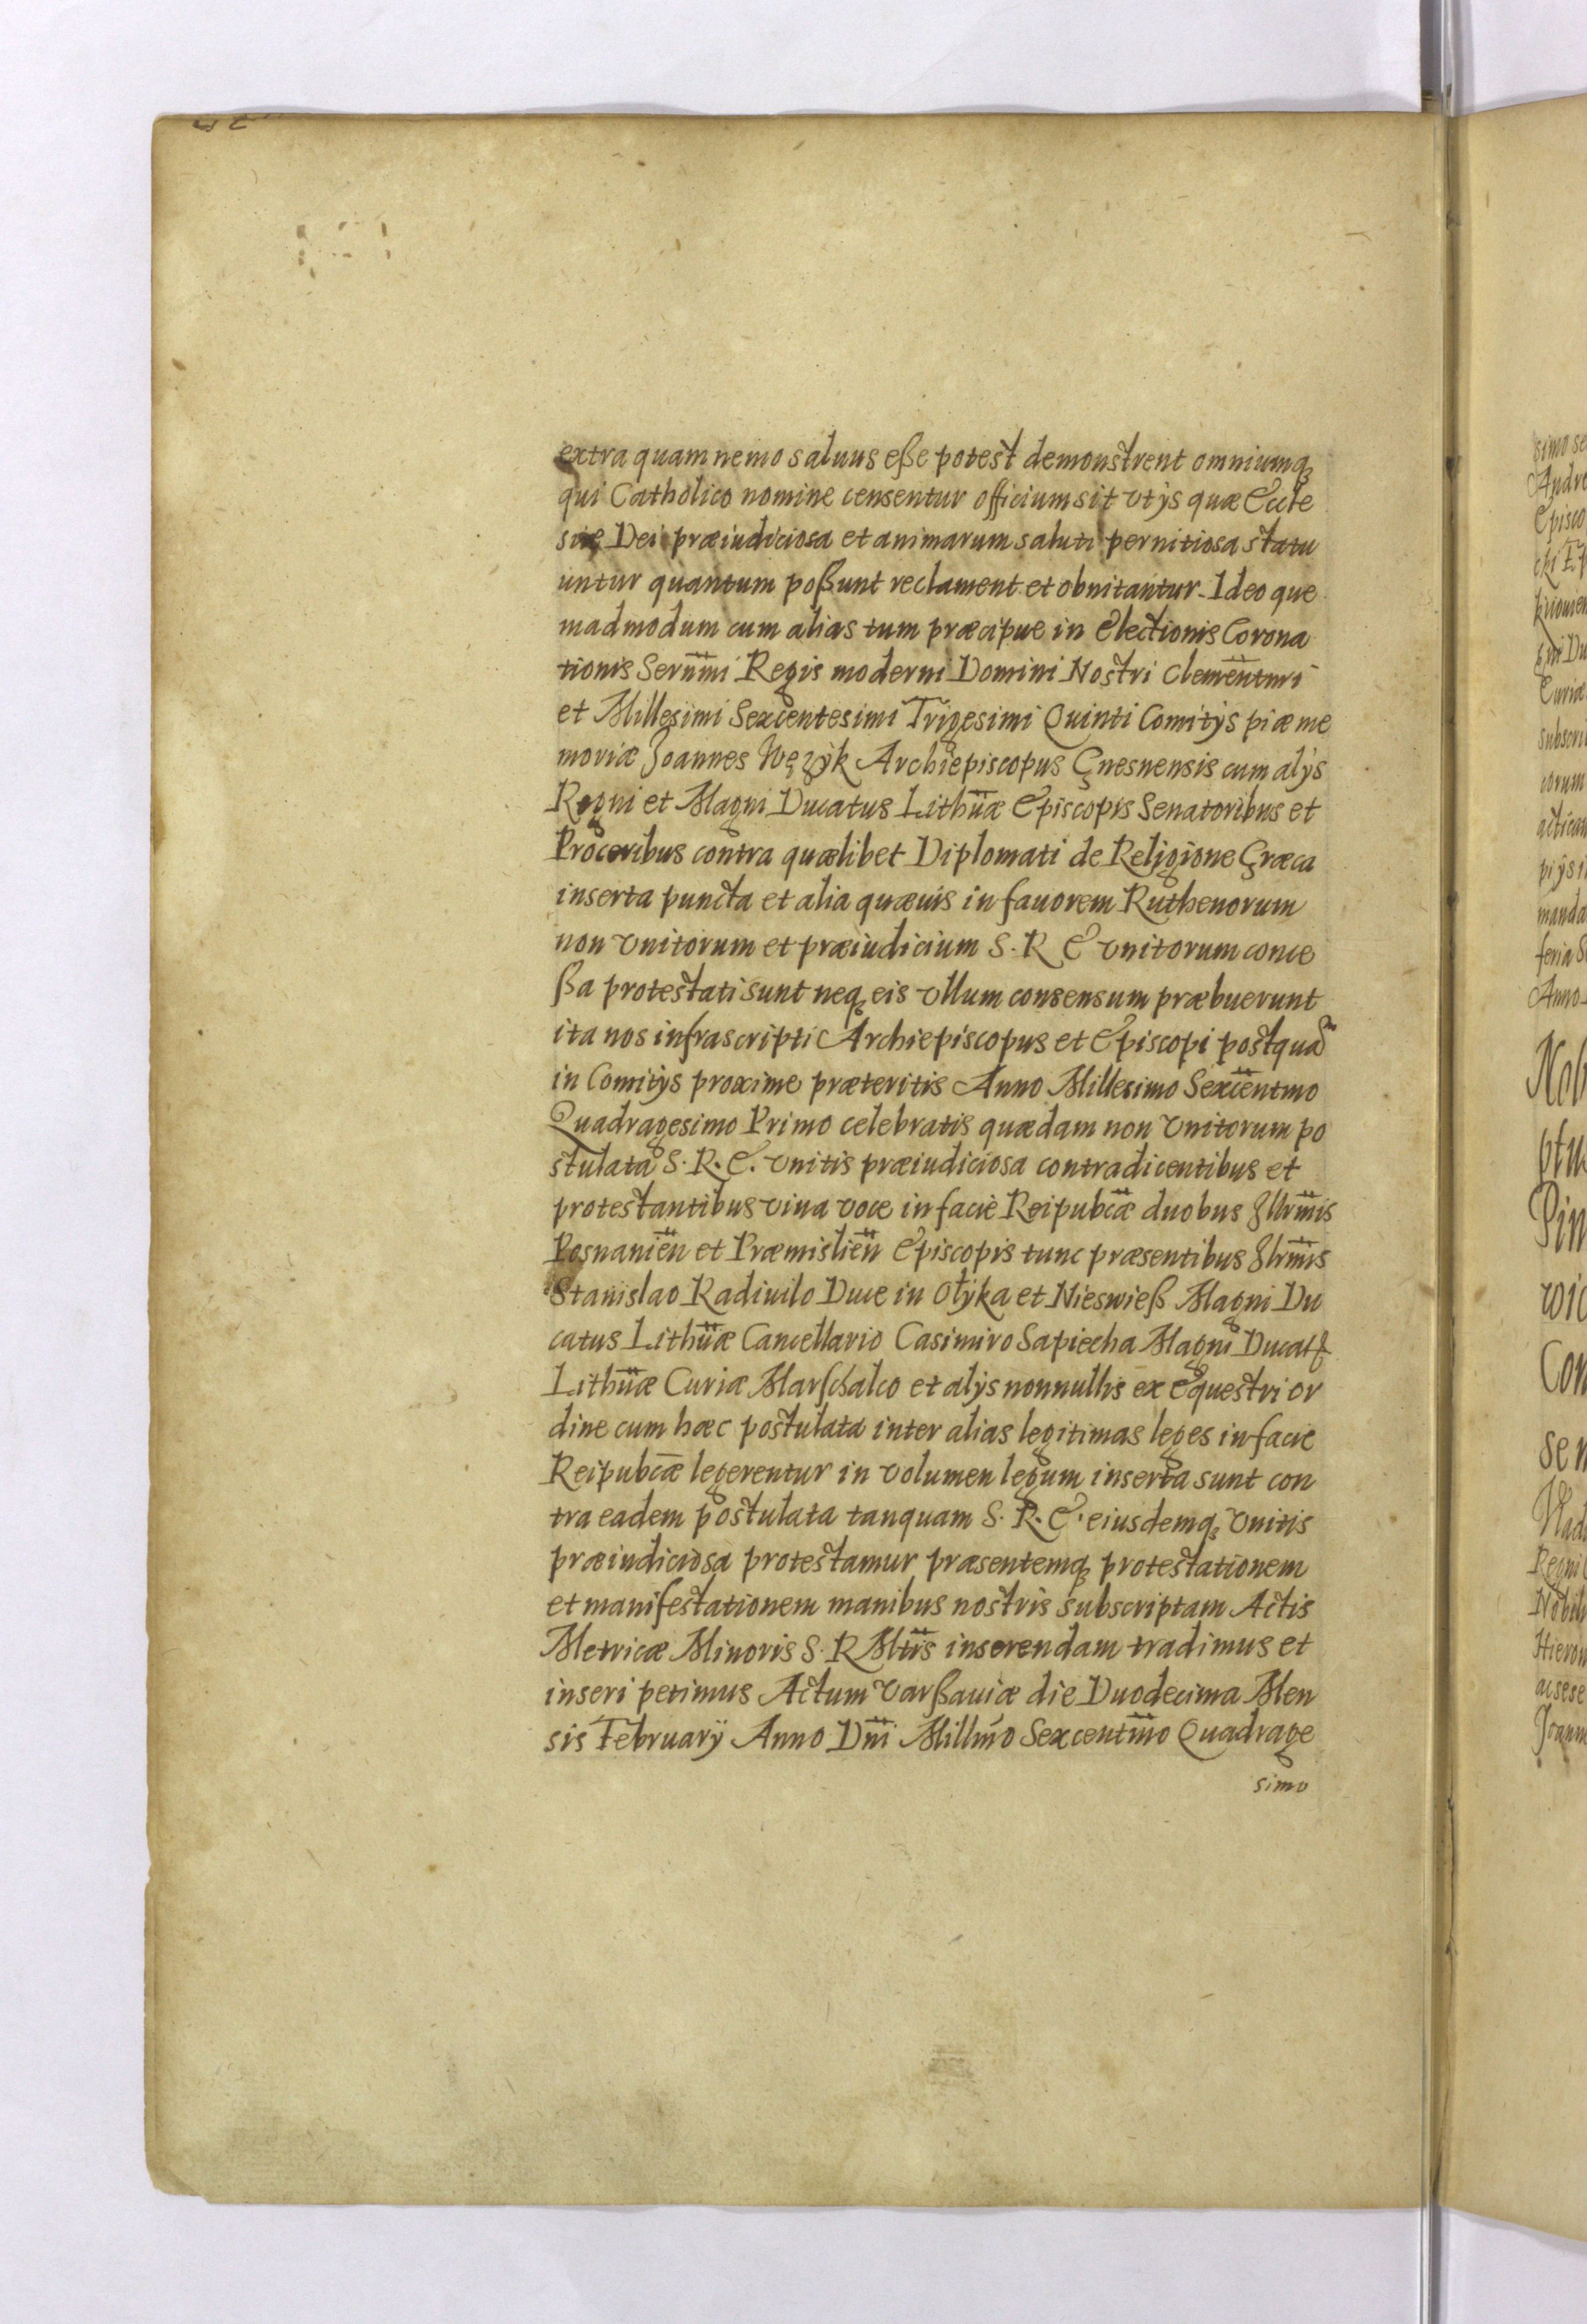 extra quam nemo saluus eße potest demonstrent omniumq₃
qui Catholico nomine censentur officium sit vt ijs quæ Eccle
siæ Dei præiudiciosa et animarum saluti pernitiosa statu
untur quantum poßunt reclament et obnitantur. Ideo que
madmodum cum alias tum præcipue in Electionis Corona
tionis Sernm̄i Regis moderni Domini Nostri Clemēntmi
et Millesimi Sexcentesimi Trigesimi Quinti Comitÿs piæ me
moriæ Joannes Węzÿk Archiepiscopus Gnesnensis cum alÿs
Regni et Magni Ducatus Lithūæ Episcopis Senatoribus et
Proceribus contra quælibet Diplomati de Religione Græca
inserta puncta et alia quæuis in fauorem Ruthenorum
non vnitorum et præiudicium S. R E vnitorum conce
ßa protestati sunt neq₃ eis vllum consensum præbuerunt
ita nos infrascripti Archiepiscopus et Episcopi postquam
in Comitÿs proxime præteritis Anno Millesimo Sexcēntmo
Quadragesimo Primo celebratis quædam non vnitorum po
stulata S. R. E. vnitis præiudiciosa contradicentibus et
protestantibus viua voce in facie Reipubc̄æ duobus Jllrm̄is
Posnaniēn et Præmisliēn Episcopis tunc præsentibus Jllrm̄is
Stanislao Radiuilo Duce in Ołÿka et Nieswieß Magni Du
catus Lithūæ Cancellario Casimiro Sapiecha Magni Ducat₉
Lithūæ Curiæ Marschalco et alÿs nonnullis ex Equestri or
dine cum hæc postulata inter alias legitimas leges in facie
Reipubc̄æ legerentur in volumen legum inserta sunt con
tra eadem postulata tanquam S. R. E. eiusdemq₃ vnitis
præiudiciosa protestamur præsentemq₃ protestationem
et manifestationem manibus nostris subscriptam Actis
Metricæ Minoris S. R Mtīs inserendam tradimus et
inseri petimus Actum Varßauiæ die Duodecima Men
sis Februarÿ Anno Dn̄i Millmo Sexcentm̄o Quadrage
simo